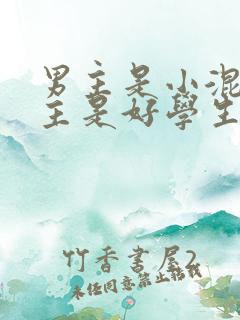 男主是小混
主是好學生
竹香書屋2
未经同意禁止转载